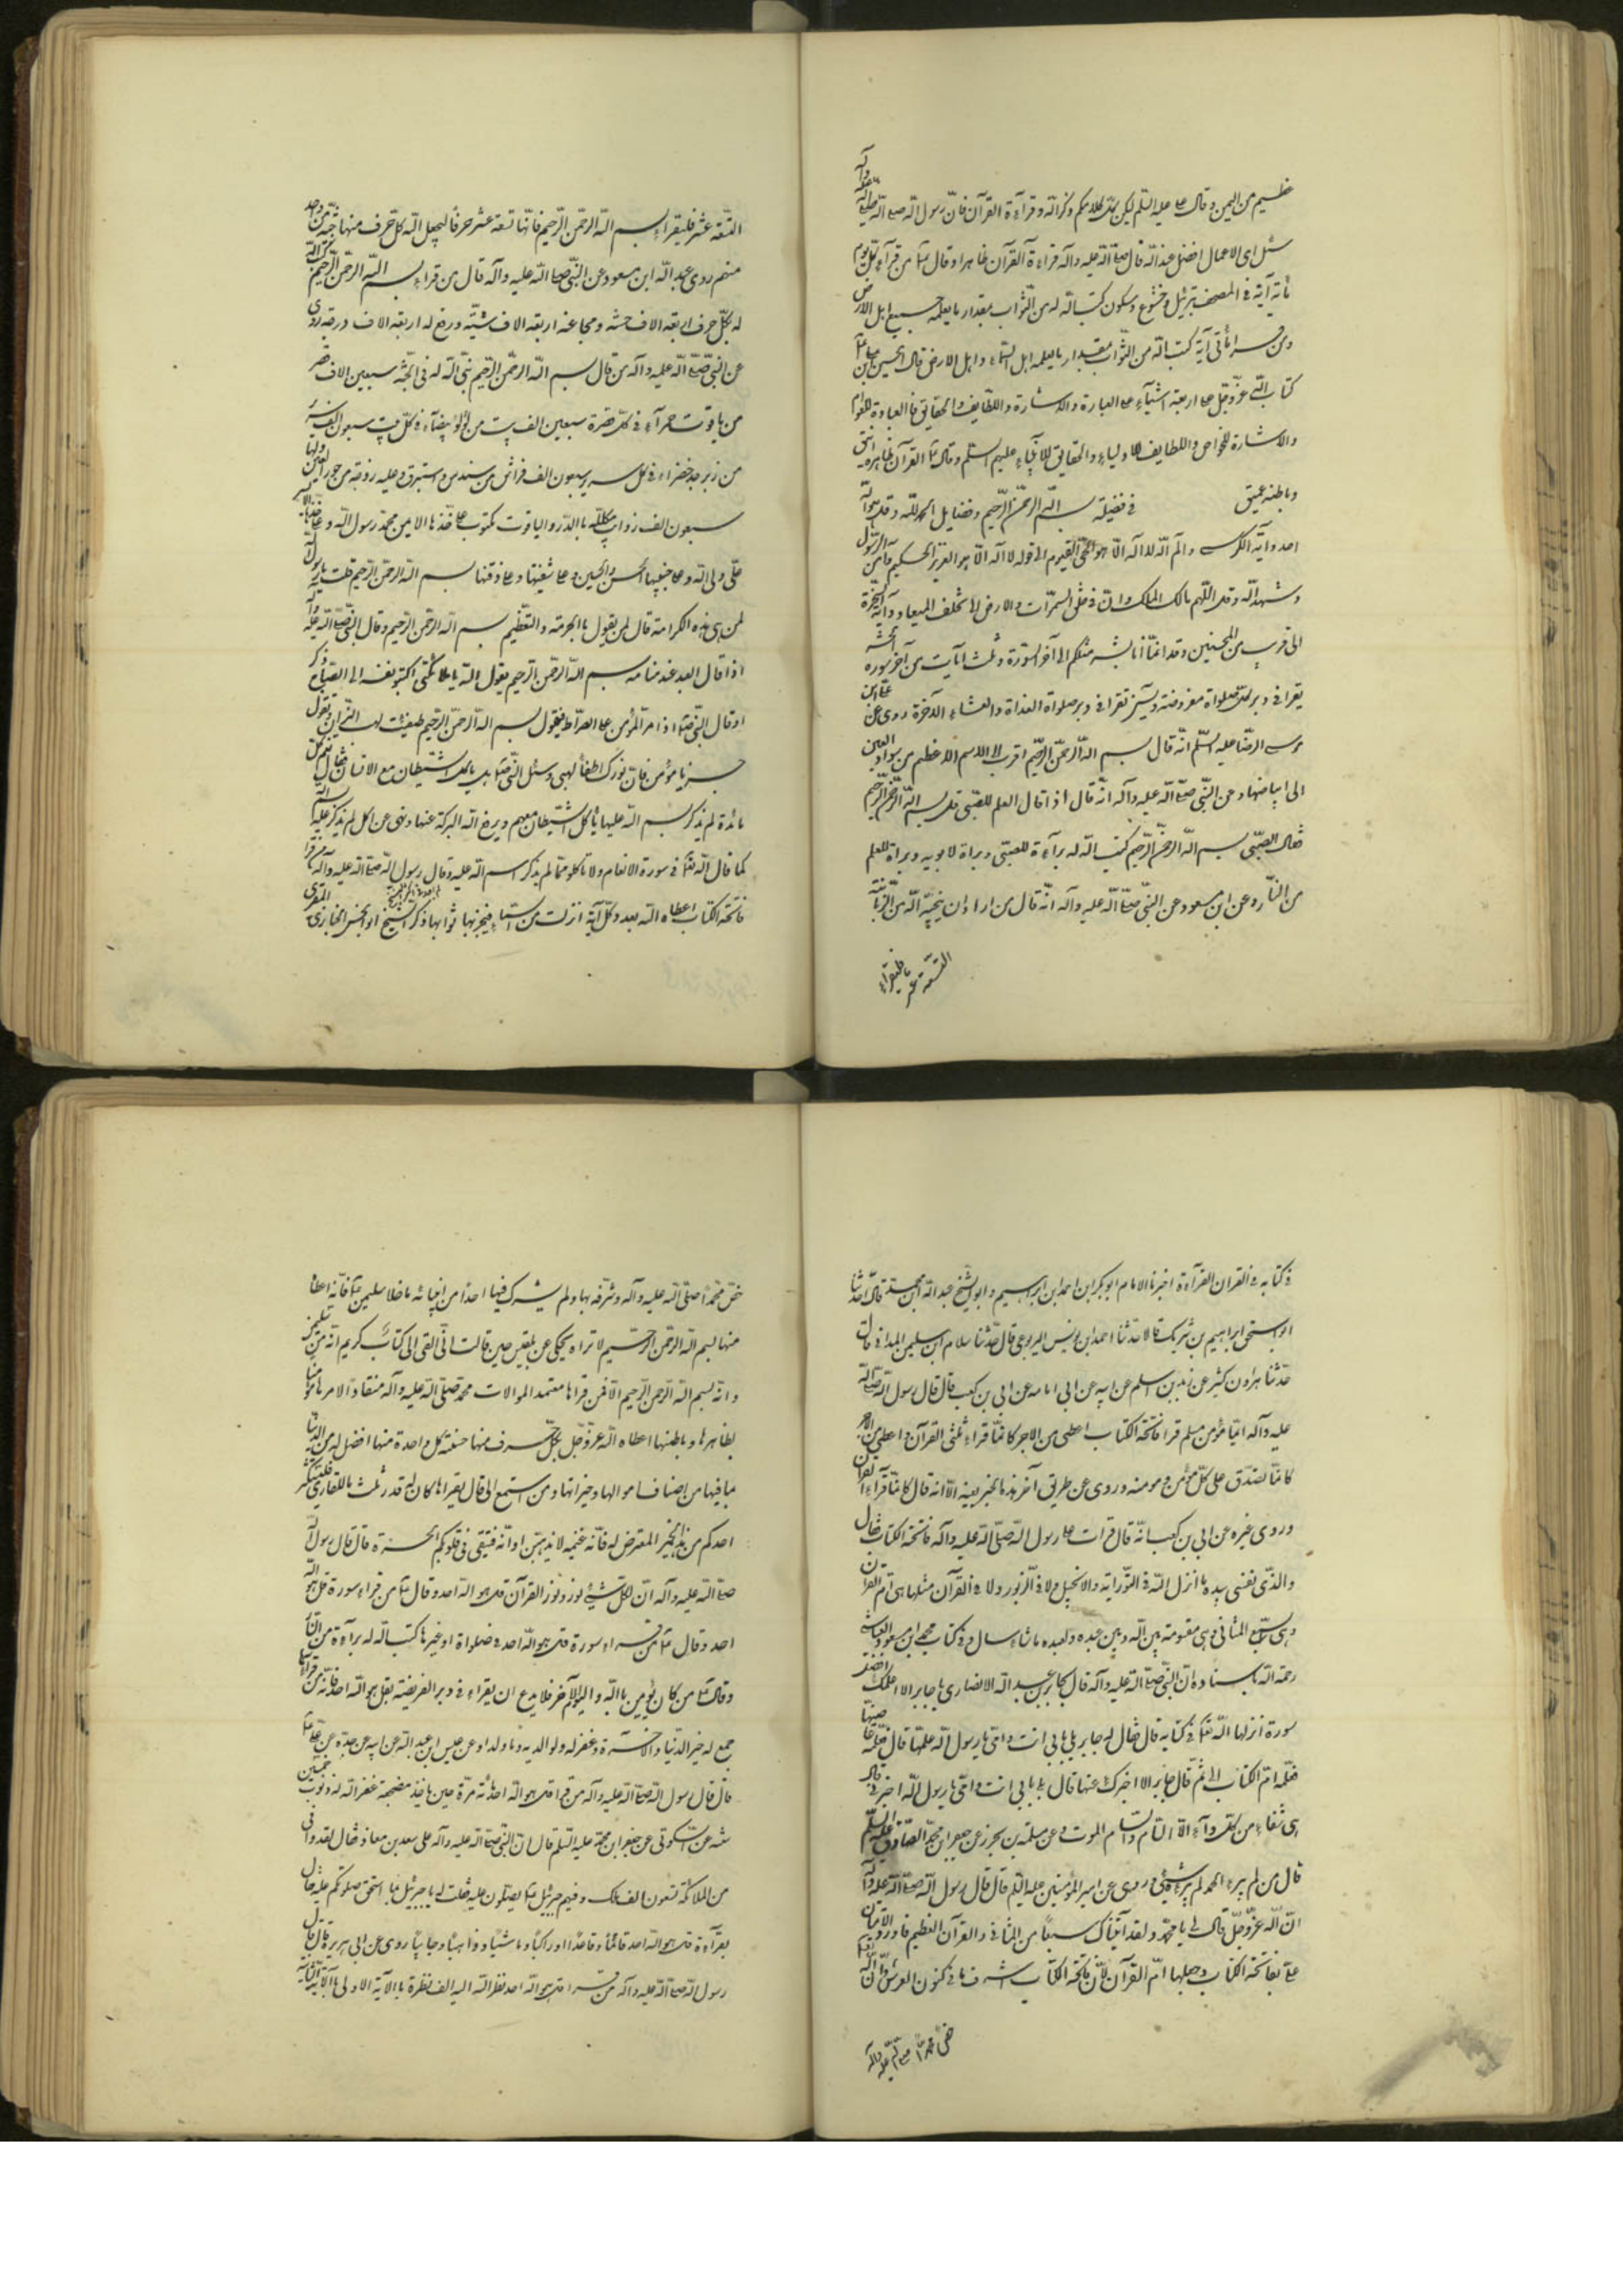 عظيم من اليمن وقال ع عليه السلم ليكن كل كلامكم ذكر الله وقراءة القرآن فان رسول الله صلى الله عليه وآله
سئل اى الاعمال افضل عند الله قال صلى الله عليه وآله قراءة القرآن ظاهرا وقال من قرأ كل يوم
مائة آية فى المصحف بترتيل وخشوع وسكون كتب الله له من الثواب بمقدار ما يعلمه جميع اهل الارض
ومن قرأ مأتى آية كتب الله من الثواب بمقدار ما يعلمه اهل السماء واهل الارض قال الحسين بن على
كتاب الله عز وجل على اربعة اشيآء على العبارة والاشارة واللطايف والحقايق فالعبارة للعوام
والاشارة للخواص واللطايف للاولياء والحقايق للانبياء عليهم السلم وقال القرآن ظاهره انيق
وباطنه عميق فى فضيلة بسم الله الرحمن الرحيم وفضايل الحمد لله وقل هو الله
احد وآية الكرسى والم الله لا اله الا هو الحى القيوم الى قوله لا اله الا هو العزيز الحكيم وآمن الرسول
وشهد الله وقل اللهم مالك الملك وان فى خلق السموات والارض الى لا تخلف الميعاد وآية السخرة
الى قريب من المحسنين وقل انما انا بشر مثلكم الى آخر السورة وثلث آيات من آخر سورة الحشر
يقرا فى دبر كل صلواة مفروضة ويس تقرا فى دبر صلواة الغداة والعشاء الآخرة روى عن على ابن
موسى الرضا عليه السلم انه قال بسم الله الرحمن الرحيم اقرب الى الاسم الاعظم من سواد العين
الى بياضها وعن النبى صلى الله عليه وآله انه قال اذا قال المعلم للصبى قل بسم الله الرحمن الرحيم
فقال الصبى بسم الله الرحمن الرحيم كتب الله له برآءة للصبى وبراة لابويه وبراة للمعلم
من النار وعن ابن مسعود عن النبى صلى الله عليه وآله انه قال من اراد ان ينجيه الله من الزبانية
التسعة عشر فليقراء
التسعة عشر فليقراء بسم الله الرحمن الرحيم فانها تسعة عشر حرفا ليجعل الله كل حرف منها جنة من واحد
منهم روى عبد الله ابن مسعود عن النبى صلى الله عليه وآله قال من قراء بسم الله الرحمن الرحيم كتب الله
له بكل حرف اربعة الاف حسنة ومحا عنه اربعة الاف سيئة ورفع له اربعة الاف درجة روى
عن النبى صلى الله عليه وآله من قال بسم الله الرحمن الرحيم بنى الله له فى الجنة سبعين الاف قصر
من ياقوت حمرآء فى كل قصر سبعين الف بيت من لؤلؤ بيضآء فى كل بيت سبعون الف سرير
من زبرجد خضراء فى كل سرير سبعون الف فراش من سندس واستبرق وعليه زوجة من حور العين ولها
سبعون الف ذوابة مكللة بالدر والياقوت مكتوب على خدها الايمن محمد رسول الله وعلى خدها الايسر
على ولى الله وعلى جبينها الحسن والحسين وعلى شفتها وعلى ذقنها بسم الله الرحمن الرحيم قلت يا رسول الله
لمن هذه الكرامة قال لمن يقول بالحرمة والتعظيم بسم الله الرحمن الرحيم وقال النبى صلى الله عليه وآله
اذا قال العبد عند منامه بسم الله الرحمن الرحيم يقول الله يا ملائكتى اكتبوا نفسه الى الصباح وذكر
اوقال النبى ص اذا مر المؤمن على الصراط فيقول بسم الله الرحمن الرحيم طفئت لهب النيران وتقول
جز يا مؤمن فان نورك اطفأ لهبى وسئل النبى ص هل ياكل الشيطان مع الانسان فقال نعم كل
مائدة لم يذكر بسم الله عليها ياكل الشيطان معهم ويرفع الله البركة عنها ونهى عن اكل لم يذكر عليه اسم الله
كما قال الله تعا فى سورة الانعام ولا تاكلوا مما لم يذكر اسم الله عليه وقال رسول الله صلى الله عليه وآله من قرأ
فاتحة الكتاب اعطاه الله بعدد كل آية انزلت من السماء فيجزى بها ثوابها ذكر الشيخ ابو الحسن الخبازى المقرى
فى كتابه فى القران القرآءة اخبرنا الامام ابو بكر ابن احمد ابن ابراهيم وابو الشيخ عبد الله ابن محمد قال حدثنا
ابو اسحق ابراهيم بن شريك قالا حدثنا احمد ابن يونس اليربوعى قال حدثنا سلام ابن سليمن المداينى قال
حدثنا هارون كثير عن زيد بن اسلم عن ابيه عن ابى امامه عن ابى بن كعب قال قال رسول الله صلى الله
عليه وآله ايما مؤمن مسلم قرا فاتحة الكتاب اعطى من الاجر كانما قراء ثلثى القرآن واعطى من الاجر
كانما تصدق على كل مؤمن ومومنه وروى عن طريق آخر هذا الخبر بعينه الا انه قال كانما قراء القرآن
وروى غيره عن ابى بن كعب انه قال قرات على رسول الله صلى الله عليه وآله فاتحة الكتاب فقال
والذى نفسى بيده ما انزل الله فى التوراية والانجيل ولا فى الزبور ولا فى القرآن مثلها هى ام القران
وهى السبع المثانى وهى مقسومة بين الله وبين عبده ولعبده ما شاء سال وفى كتاب محمد ابن مسعود العياشى
رحمة الله باسناده ان النبى صلى الله عليه وآله قال لجابر بن عبد الله الانصارى يا جابر الا اعلمك افضل
سورة انزلها الله تعا فى كتابه قال فقال له جابر بلى بابى انت وامى يا رسول الله علمنيها قال فعلمه
فعلمه ام الكتاب ثم قال يا جابر الا اخبرك عنها قال بلى بابى انت وامى يا رسول الله اخبرنى قال
هى شفاء من كل داء الا السام والسام الموت وعن سلمة بن محرز عن جعفر ابن محمد الصادق عليه السلم
قال من لم يبرء الحمد لم يبرء شىء وروى عن امير المؤمنين عليه السلم قال قال رسول الله صلى الله عليه وآله
ان الله عز وجل قال لى يا محمد ولقد آتيناك سبعا من المثانى والقرآن العظيم فاورد الامتنان
على بفاتحة الكتاب وجعلها ام القرآن لان فاتحة الكتاب اشرف ما فى كنوز العرش وان الله
خص محمدا صلى الله عليه وآله
خص محمدا صلى الله عليه وآله وشرفه بها ولم يشرك فيها احدا من انبيائه ما خلا سليمن فانه اعطاه
منها بسم الله الرحمن الرحيم الا تراه يحكى عن بلقيس حين قالت انى القى الى كتاب كريم انه من سليمن
وانه بسم الله الرحمن الرحيم الا فمن قراها معتمد الموالات محمد صلى الله عليه وآله منقادا لامرها مؤمنا
بظاهرها وباطنها اعطاه الله عز وجل بكل حرف منها حسنة كل واحدة منها افضل له من الدنيا
بما فيها من اصناف اموالها وخيراتها ومن استمع الى قال يقراها كان له قدر ثلث ما للقارى فليستكثر
احدكم من هذا الخير المعترض له فانه غنيمة لا يذهبن اوانه فتبقى فى قلوبكم الحسرة قال قال رسول الله
صلى الله عليه وآله ان لكل شىء نور ونور القرآن قل هو الله احد وقال من قراء سورة قل هو الله
احد وقال من قراء سورة قل هو الله احد فى صلواة او غيرها كتب الله له برآءة من النار
وقال من كان يؤمن بالله واليوم الآخر فلا يدع ان يقراء فى دبر الفريضة بقل هو الله احد فانه من قراها
جمع له خير الدنيا والاخرة وغفر له ولوالديه وما ولدا وعن عيسى ابن عبد الله عن ابيه عن جده عن على
قال قال رسول الله صلى الله عليه وآله من قرا قل هو الله احد مائة مرة حين ياخذ مضجعه غفر الله له ذنوب خمسين
سنة عن السكونى عن جعفر ابن محمد عليه السلم قال ان النبى صلى الله عليه وآله صلى على سعد بن معاذ فقال لقد وافى
من الملائكة تسعون الف ملك وفيهم جبرئيل يصلون عليه فقلت له يا جبرئيل بما استحق صلوتكم عليه فقال
بقرآءة قل هو الله احد قائما وقاعدا وراكبا وماشيا وذاهبا وجائيا روى عن ابى هريرة قال قال
رسول الله صلى الله عليه وآله من قرا قل هو الله احد نظر الله اليه الف نظرة بالآية الاولى وبالآية الثانية